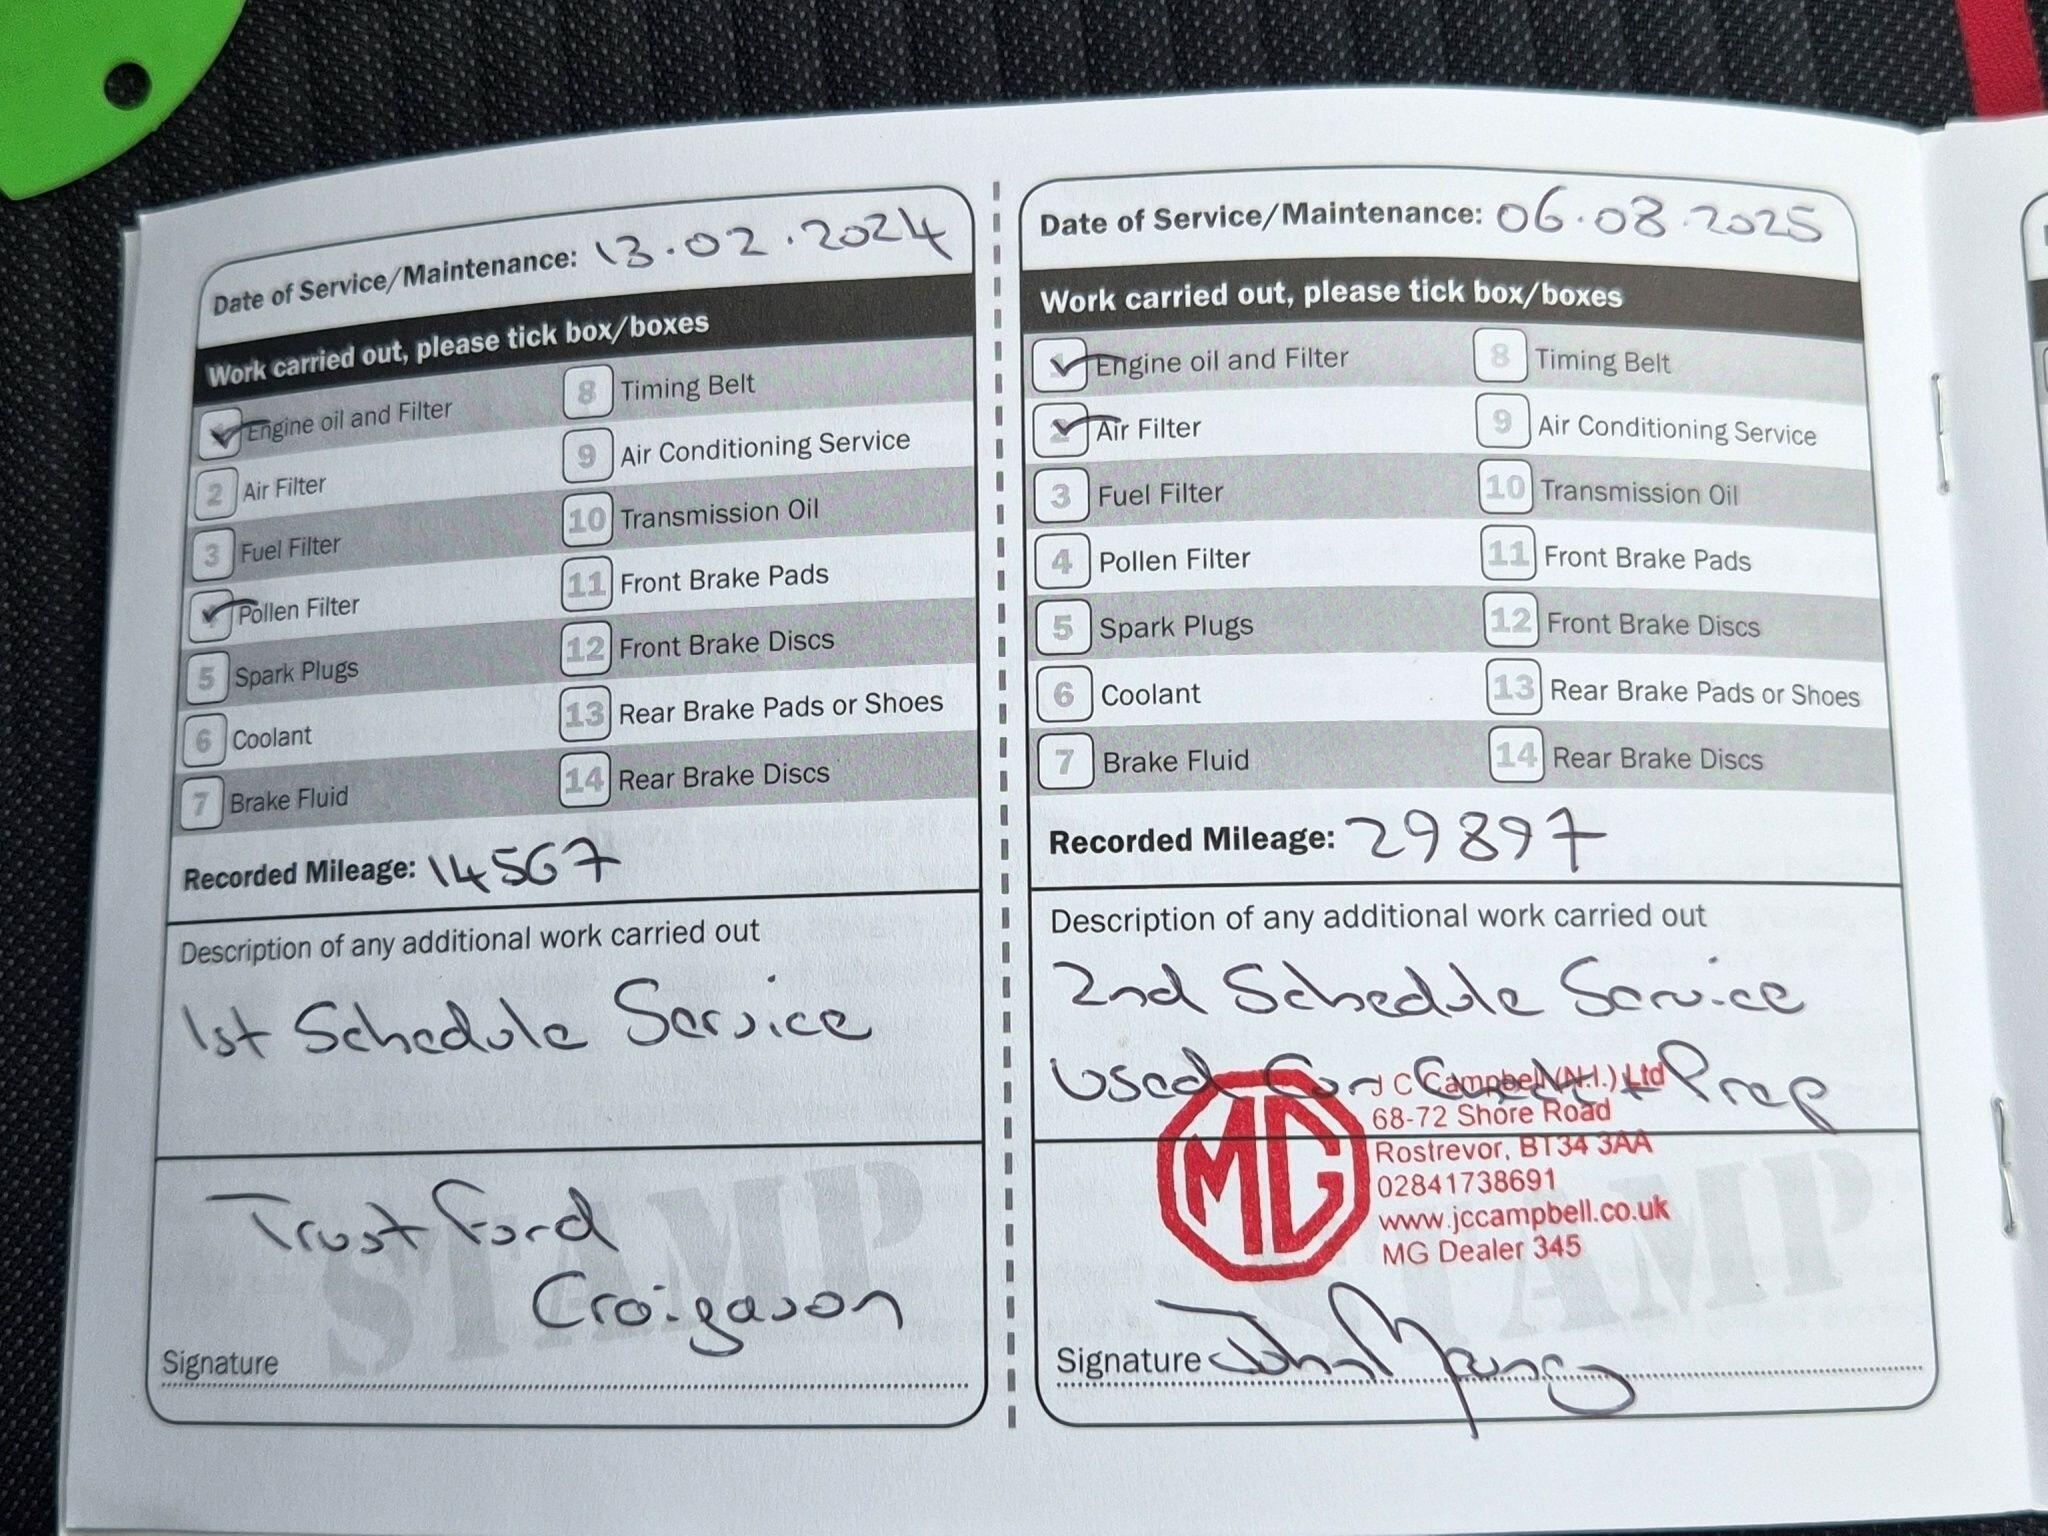 Date of Service/Maintenance: 13.02.2024
Work carried out, please tick box/boxes
Engine oil and Filter
2 Air Filter
3 Fuel Filter
Pollen Filter
5 Spark Plugs
6 Coolant
7 Brake Fluid
8 Timing Belt
9 Air Conditioning Service
10 Transmission Oil
11 Front Brake Pads
12 Front Brake Discs
13 Rear Brake Pads or Shoes
14 Rear Brake Discs
Recorded Mileage: 14567
Description of any additional work carried out
1st Schedule Service
STAMP
Trust Ford
Craigavon
Signature
Date of Service/Maintenance: 06.08.2025
Work carried out, please tick box/boxes
1 Engine oil and Filter
2 Air Filter
3 Fuel Filter
4 Pollen Filter
5 Spark Plugs
6 Coolant
7 Brake Fluid
8 Timing Belt
9 Air Conditioning Service
10 Transmission Oil
11 Front Brake Pads
12 Front Brake Discs
13 Rear Brake Pads or Shoes
14 Rear Brake Discs
Recorded Mileage: 29897
Description of any additional work carried out
2nd Schedule Service
Used Car + Prep
MG
J C Campbell (N.I.) Ltd
68-72 Shore Road
Rostrevor, BT34 3AA
02841738691
www.jccampbell.co.uk
MG Dealer 345
STAMP
Signature John